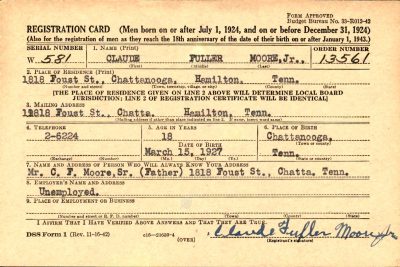 Form Approved
Budget Bureau No. 33-R012-42
REGISTRATION CARD (Men born on or after July 1, 1924, and on or before December 31, 1924)
(Also for the registration of men as they reach the 18th anniversary of the date of their birth on or after January 1, 1943.)
SERIAL NUMBER 1. NAME (Print) ORDER NUMBER
W 581 CLAUDE FULLER MOORE, Jr., 13561
(First) (Middle) (Last)
2. PLACE OF RESIDENCE (Print)
1818 Foust St., Chattanooga, Hamilton, Tenn.
(Number and street) (Town, township, village, or city) (County) (State)
[THE PLACE OF RESIDENCE GIVEN ON LINE 2 ABOVE WILL DETERMINE LOCAL BOARD
JURISDICTION; LINE 2 OF REGISTRATION CERTIFICATE WILL BE IDENTICAL]
3. MAILING ADDRESS
1818 Foust St., Chatta. Hamilton, Tenn.
4. TELEPHONE 5. AGE IN YEARS 6. PLACE OF BIRTH
2-6224 18 Chattanooga,
DATE OF BIRTH (Town or county)
March 15, 1927 Tenn.
(Exchange) (Number) (Mo.) (Day) (Yr.) (State or country)
7. NAME AND ADDRESS OF PERSON WHO WILL ALWAYS KNOW YOUR ADDRESS
Mr. C. F. Moore, Sr. (Father) 1818 Foust St., Chatta. Tenn.
8. EMPLOYER'S NAME AND ADDRESS
Unemployed.
9. PLACE OF EMPLOYMENT OR BUSINESS
(Number and street or R. F. D. number) (Town) (County) (State)
I AFFIRM THAT I HAVE VERIFIED ABOVE ANSWERS AND THAT THEY ARE TRUE.
DSS Form 1 (Rev. 11-16-42) (OVER) Claude Fuller Moore Jr
(Registrant's signature)